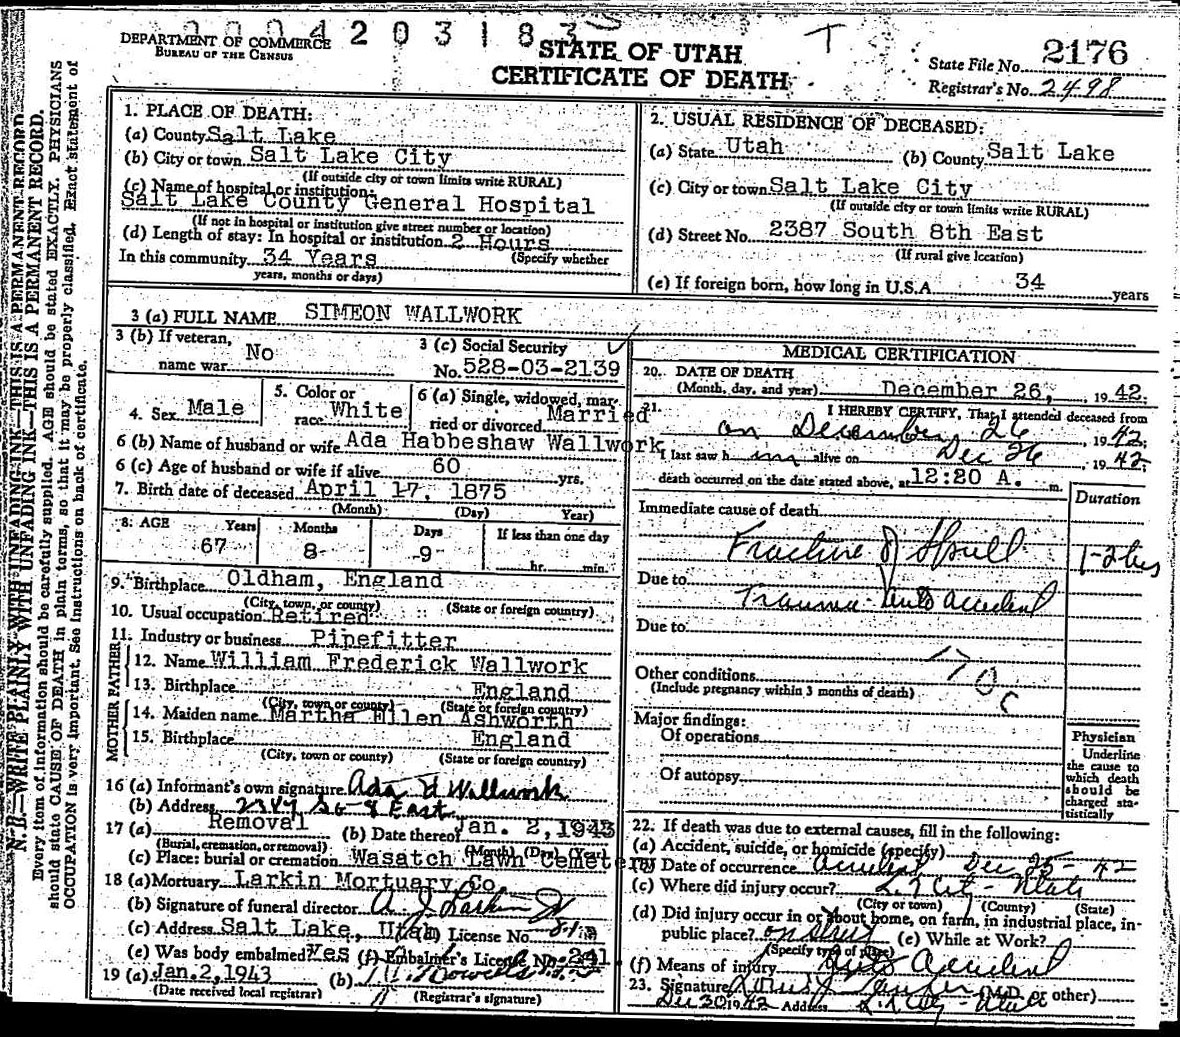 0004203183
T
DEPARTMENT OF COMMERCE
BUREAU OF THE CENSUS
STATE OF UTAH
CERTIFICATE OF DEATH
State File No. 2176
Registrar's No. 2498
N. B.—WRITE PLAINLY WITH UNFADING INK—THIS IS A PERMANENT RECORD.
Every item of information should be carefully supplied. AGE should be stated EXACTLY. PHYSICIANS
should state CAUSE OF DEATH in plain terms, so that it may be properly classified. Exact statement of
OCCUPATION is very important. See instructions on back of certificate.
1. PLACE OF DEATH:
(a) County Salt Lake
(b) City or town Salt Lake City
(If outside city or town limits write RURAL)
(c) Name of hospital or institution:
Salt Lake County General Hospital
(If not in hospital or institution give street number or location)
(d) Length of stay: In hospital or institution 2 Hours
(Specify whether
In this community 34 Years
years, months or days)
2. USUAL RESIDENCE OF DECEASED:
(a) State Utah (b) County Salt Lake
(c) City or town Salt Lake City
(If outside city or town limits write RURAL)
(d) Street No. 2387 South 8th East
(If rural give location)
(e) If foreign born, how long in U.S.A. 34 years
3 (a) FULL NAME SIMEON WALLWORK
3 (b) If veteran,
name war No
3 (c) Social Security
No. 528-03-2139
4. Sex Male
5. Color or
race White
6 (a) Single, widowed, mar-
ried or divorced Married
6 (b) Name of husband or wife Ada Habbeshaw Wallwork
6 (c) Age of husband or wife if alive 60 yrs.
7. Birth date of deceased April 17, 1875
(Month) (Day) Year)
8. AGE Years 67 Months 8 Days 9 If less than one day
hr. min.
9. Birthplace Oldham, England
(City, town, or county) (State or foreign country)
10. Usual occupation Retired
11. Industry or business Pipefitter
FATHER
12. Name William Frederick Wallwork
13. Birthplace England
(City, town or county) (State or foreign country)
MOTHER
14. Maiden name Martha Ellen Ashworth
15. Birthplace England
(City, town or county) (State or foreign country)
16 (a) Informant's own signature Ada H Wallwork
(b) Address 2387 So 8 East
17 (a) Removal (b) Date thereof Jan. 2, 1943
(Burial, cremation, or removal) (Month) (Day) (Year)
(c) Place: burial or cremation Wasatch Lawn Cemetery
18 (a) Mortuary Larkin Mortuary Co.
(b) Signature of funeral director A. J. Larkin
(c) Address Salt Lake, Utah (d) License No.
(e) Was body embalmed? Yes (f) Embalmer's License No. 241
19 (a) Jan. 2, 1943 (b)
(Date received local registrar) (Registrar's signature)
MEDICAL CERTIFICATION
20. DATE OF DEATH
(Month, day, and year) December 26, 1942.
21. I HEREBY CERTIFY, That I attended deceased from
on December 26 1942;
I last saw him alive on Dec 26 1942;
death occurred on the date stated above, at 12:20 A. m.
Duration
Immediate cause of death
Fracture of Skull 1-2 hrs
Due to
Trauma - Auto accident
Due to
170c
Other conditions
(Include pregnancy within 3 months of death)
Major findings:
Of operations
Of autopsy
Physician
Underline
the cause to
which death
should be
charged sta-
tistically
22. If death was due to external causes, fill in the following:
(a) Accident, suicide, or homicide (specify)
(b) Date of occurrence Accident Dec 25-42
(c) Where did injury occur? S. L. City - Utah
(City or town) (County) (State)
(d) Did injury occur in or about home, on farm, in industrial place, in
public place? on street (e) While at Work?
(Specify type of place)
(f) Means of injury Auto Accident
23. Signature (M.D. or other)
Dec 30 1942 Address S. L. City - Utah